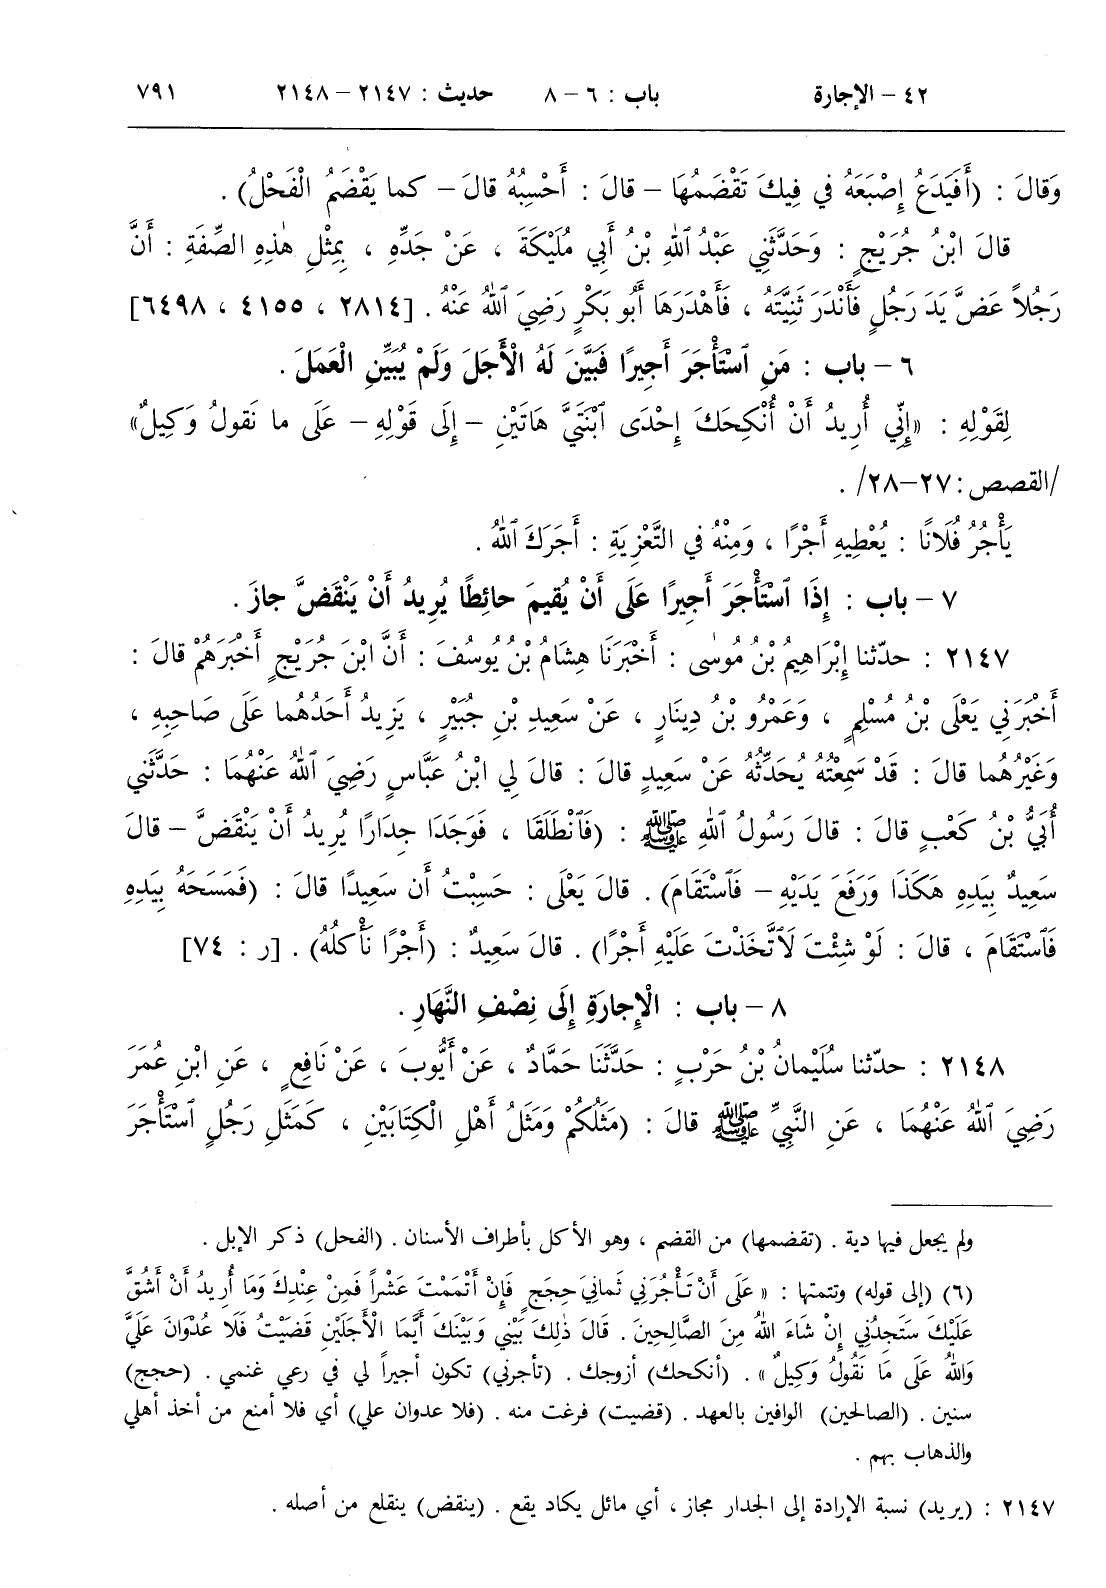 ٤٢ – الإجارة باب : ٦ – ٨ حديث : ٢١٤٧ – ٢١٤٨ ٧٩١
وَقالَ : (أَفَيَدَعُ إِصْبَعَهُ في فِيكَ تَقْضَمُهَا – قالَ : أَحْسِبُهُ قالَ – كما يَقْضَمُ الْفَحْلُ) .
قالَ ابْنُ جُرَيْجٍ : وَحَدَّثَنِي عَبْدُ ٱللهِ بْنُ أَبِي مُلَيْكَةَ ، عَنْ جَدِّهِ ، بِمِثْلِ هٰذِهِ الصِّفَةِ : أَنَّ
رَجُلاً عَضَّ يَدَ رَجُلٍ فَأَنْدَرَ ثَنِيَّتَهُ ، فَأَهْدَرَهَا أَبُو بَكْرٍ رَضِيَ ٱللهُ عَنْهُ . [٢٨١٤ ، ٤١٥٥ ، ٦٤٩٨]
٦ – باب : مَنِ ٱسْتَأْجَرَ أَجِيرًا فَبَيَّنَ لَهُ الْأَجَلَ وَلَمْ يُبَيِّنِ الْعَمَلَ .
لِقَوْلِهِ : «إِنِّي أُرِيدُ أَنْ أُنْكِحَكَ إِحْدَى ٱبْنَتَيَّ هَاتَيْنِ – إِلَى قَوْلِهِ – عَلَى ما نَقولُ وَكِيلٌ»
/القصص : ٢٧–٢٨/ .
يَأْجُرُ فُلَانًا : يُعْطِيهِ أَجْرًا ، وَمِنْهُ في التَّعْزِيَةِ : أَجَرَكَ ٱللهُ .
٧ – باب : إِذَا ٱسْتَأْجَرَ أَجِيرًا عَلَى أَنْ يُقِيمَ حائِطًا يُرِيدُ أَنْ يَنْقَضَّ جازَ .
٢١٤٧ : حدّثنا إِبْرَاهِيمُ بْنُ مُوسٰى : أَخْبَرَنَا هِشَامُ بْنُ يُوسُفَ : أَنَّ ابْنَ جُرَيْجٍ أَخْبَرَهُمْ قالَ :
أَخْبَرَنِي يَعْلَى بْنُ مُسْلِمٍ ، وَعَمْرُو بْنُ دِينَارٍ ، عَنْ سَعِيدِ بْنِ جُبَيْرٍ ، يَزِيدُ أَحَدُهُما عَلَى صَاحِبِهِ ،
وَغَيْرُهُما قالَ : قَدْ سَمِعْتُهُ يُحَدِّثُهُ عَنْ سَعِيدٍ قالَ : قالَ لِي ابْنُ عَبَّاسٍ رَضِيَ ٱللهُ عَنْهُمَا : حَدَّثَنِي
أُبَيُّ بْنُ كَعْبٍ قالَ : قالَ رَسُولُ ٱللهِ ﷺ : (فَٱنْطَلَقَا ، فَوَجَدَا جِدَارًا يُرِيدُ أَنْ يَنْقَضَّ – قالَ
سَعِيدٌ بِيَدِهِ هَكَذَا وَرَفَعَ يَدَيْهِ – فَٱسْتَقَامَ) . قالَ يَعْلَى : حَسِبْتُ أَن سَعِيدًا قالَ : (فَمَسَحَهُ بِيَدِهِ
فَٱسْتَقَامَ ، قالَ : لَوْ شِئْتَ لَٱتَّخَذْتَ عَلَيْهِ أَجْرًا) . قالَ سَعِيدٌ : (أَجْرًا نَأْكُلُهُ) . [ر : ٧٤]
٨ – باب : الْإِجارَةِ إِلَى نِصْفِ النَّهَارِ .
٢١٤٨ : حدّثنا سُلَيْمانُ بْنُ حَرْبٍ : حَدَّثَنَا حَمَّادٌ ، عَنْ أَيُّوبَ ، عَنْ نَافِعٍ ، عَنِ ابْنِ عُمَرَ
رَضِيَ ٱللهُ عَنْهُمَا ، عَنِ النَّبِيِّ ﷺ قالَ : (مَثَلُكُمْ وَمَثَلُ أَهْلِ الْكِتَابَيْنِ ، كَمَثَلِ رَجُلٍ ٱسْتَأْجَرَ
ولم يجعل فيها دية . (تقضمها) من القضم ، وهو الأكل بأطراف الأسنان . (الفحل) ذكر الإبل .
(٦) (إلى قوله) وتتمتها : « عَلَى أَنْ تَأْجُرَنِي ثَمانِيَ حِجَجٍ فَإِنْ أَتْمَمْتَ عَشْراً فَمِنْ عِنْدِكَ وَمَا أُرِيدُ أَنْ أَشُقَّ
عَلَيْكَ سَتَجِدُنِي إِنْ شَاءَ اللهُ مِنَ الصَّالِحِينَ . قَالَ ذٰلِكَ بَيْنِي وَبَيْنَكَ أَيَّمَا الْأَجَلَيْنِ قَضَيْتُ فَلَا عُدْوَانَ عَلَيَّ
وَاللهُ عَلَى مَا نَقُولُ وَكِيلٌ » . (أنكحك) أزوجك . (تأجرني) تكون أجيراً لي في رعي غنمي . (حجج)
سنين . (الصالحين) الوافين بالعهد . (قضيت) فرغت منه . (فلا عدوان علي) أي فلا أمنع من أخذ أهلي
والذهاب بهم .
٢١٤٧ : (يريد) نسبة الإرادة إلى الجدار مجاز ، أي مائل يكاد يقع . (ينقض) ينقلع من أصله .